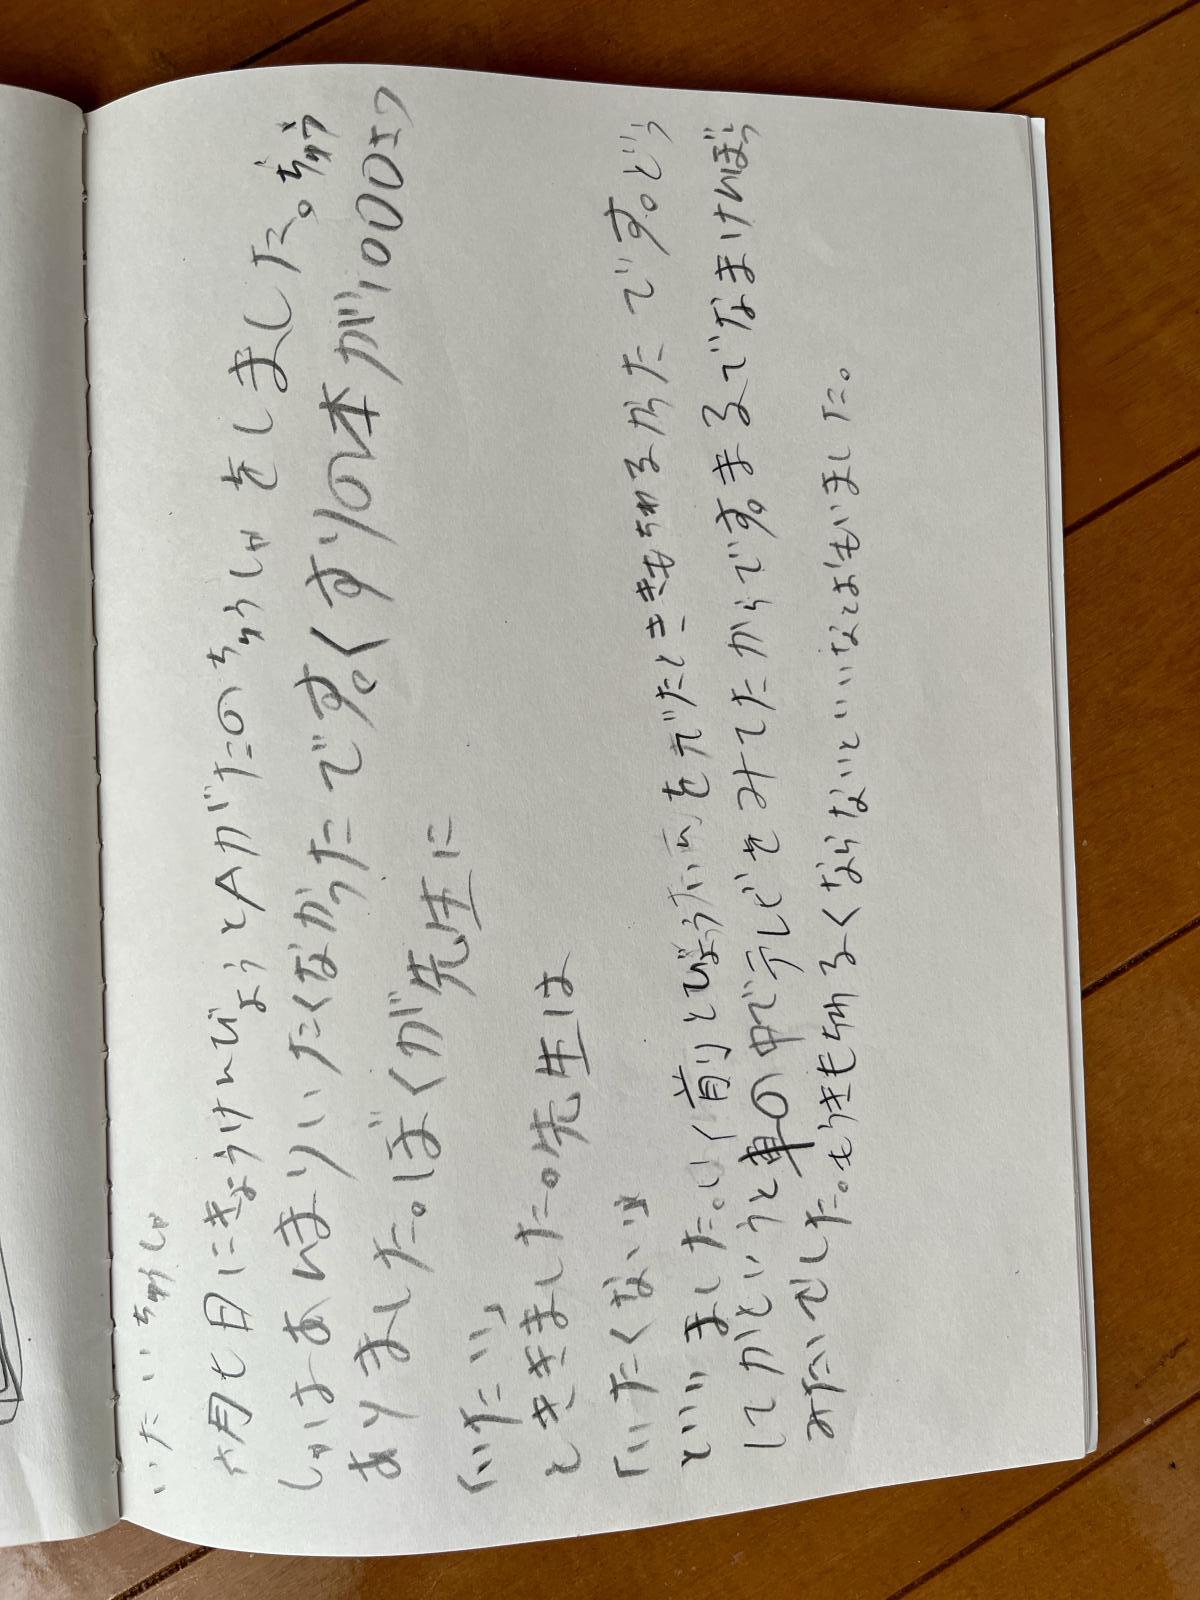 いたいちゅしゃ
六月七日にきょうけんびょうとAがたのちゅうしゃをしました。ちゅう
しゃはあんまりいたくなかったです。くすりの本が1000さつ
ありました。ぼくが先生に
「いたい」
とききました。先生は
「いたくないよ」
といいました。いく前りとびょういんをでたとききもちわるかたです。どう
してかというと車の中でテレビをみてたからです。まるでなまけんぼう
みたいでした。もうきもちわるくならないといいなとおもいました。